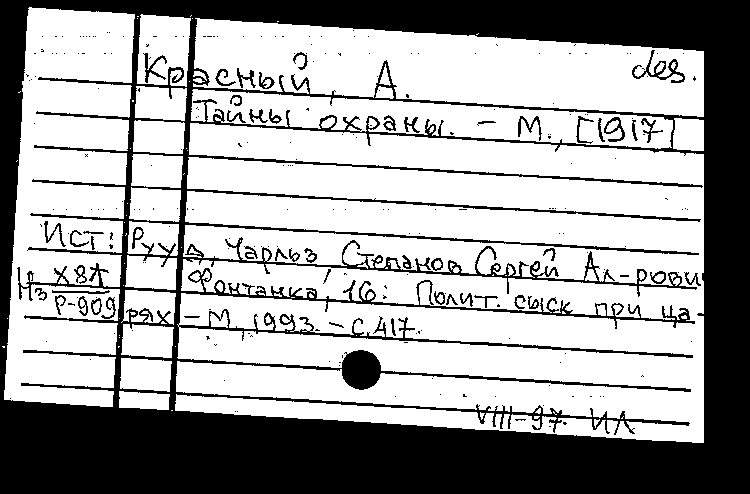 des.
Красный, А.
Тайны охраны. – М., [1917]
Ист: Рууд, Чарльз, Степанов Сергей Ал-рович
Нз Х8Л Фонтанка, 16: Полит. сыск при ца-
Р-909 рях – М., 1993. – С.417.
VIII-97 ИЛ